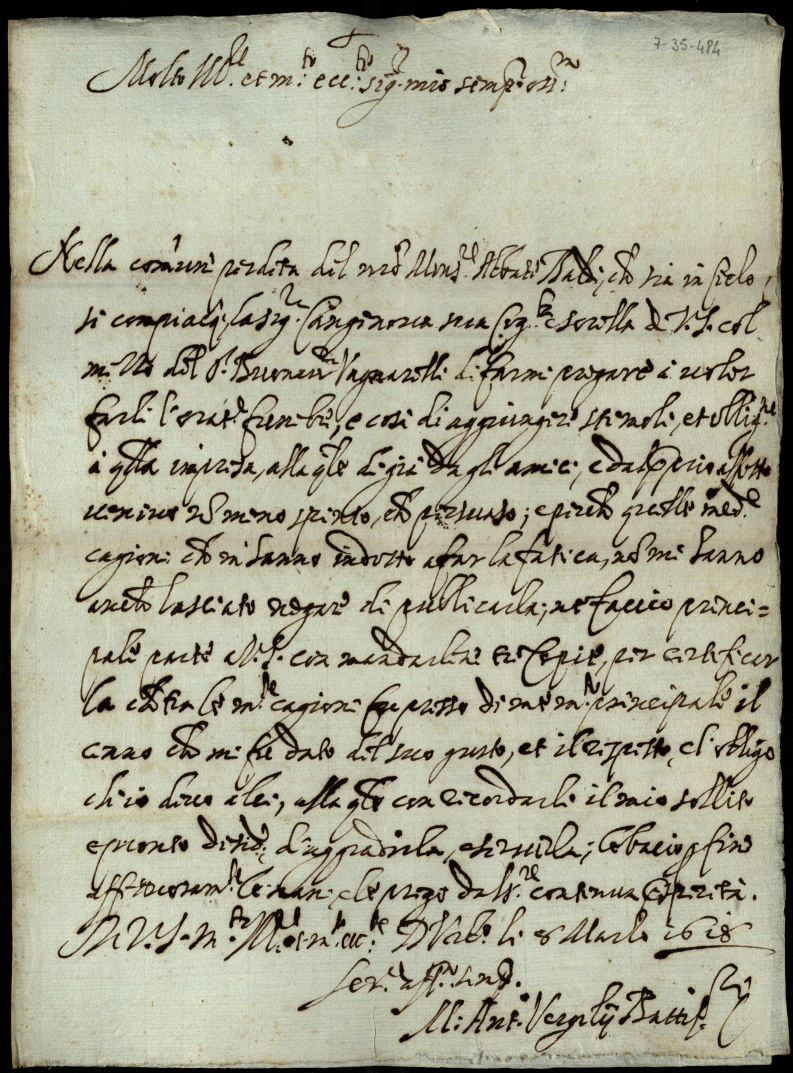 7-35-484
Molto Ill.re et m.to ecc.te sig.r mio semp.r oss.mo
Nella comun perdita del nro Mons.re Abbate Baldi, ch sia in Cielo,
si compiacq; la sig.ra sua Cog.ta e sorella di V.S. col
mezzo del S.r Vagnarelli di farmi pregare à voler
farli l'orat.e funebre, e così di aggiungere stimoli, et oblig.ni
à q̄lla impresa, alla q̄le di già dagli amici, e dal pprio affetto
veniva nō meno spinto, ch persuaso; e perch quelle med.e
cagioni ch m'hanno indotto a far la fatica, nō mi hanno
anco lasciato negare di publicarla; ne faccio princi=
pale parte a V.S. con mandarline tre Copie, per certificar
la ch tra le m.te cagioni fu presso di me m.to principale il
cenno ch mi fu dato del suo gusto, et il rispetto, e l'obligo
ch'io devo a lei, alla q̄le con ricordarli il mio sollito
e pronto desid.o d'aggradirla, e servirla; le bacio p fine
affettuosam.te le mani, e le prego dal S.re continua prosperità.
Di V.S. m.to Ill.re et m.to ecc.te D'Urb.o li 8 Marzo 1618
Ser.re aff.mo semp.
M. Ant.o Vergilij Battif.ri